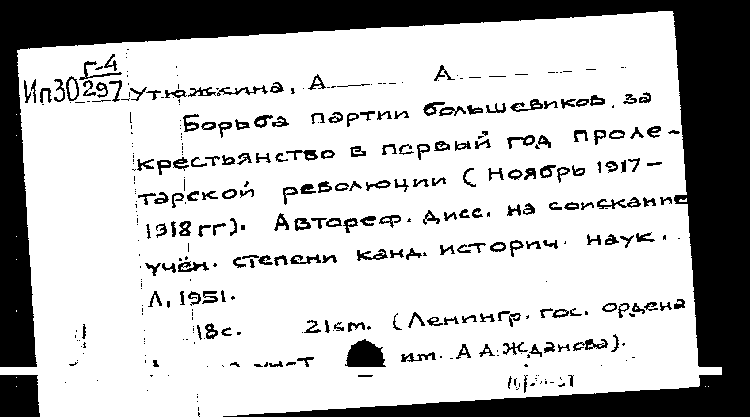 г-4
Ип30 297 Утюжкина, А А
Борьба партии большевиков за
крестьянство в первый год проле-
тарской революции (Ноябрь 1917-
1918 гг). Автореф. дисс. на соискание
учён. степени канд. историч. наук.
Л, 1951.
18с. 21см. (Ленингр. гос. ордена
унст им. А А Жданова).